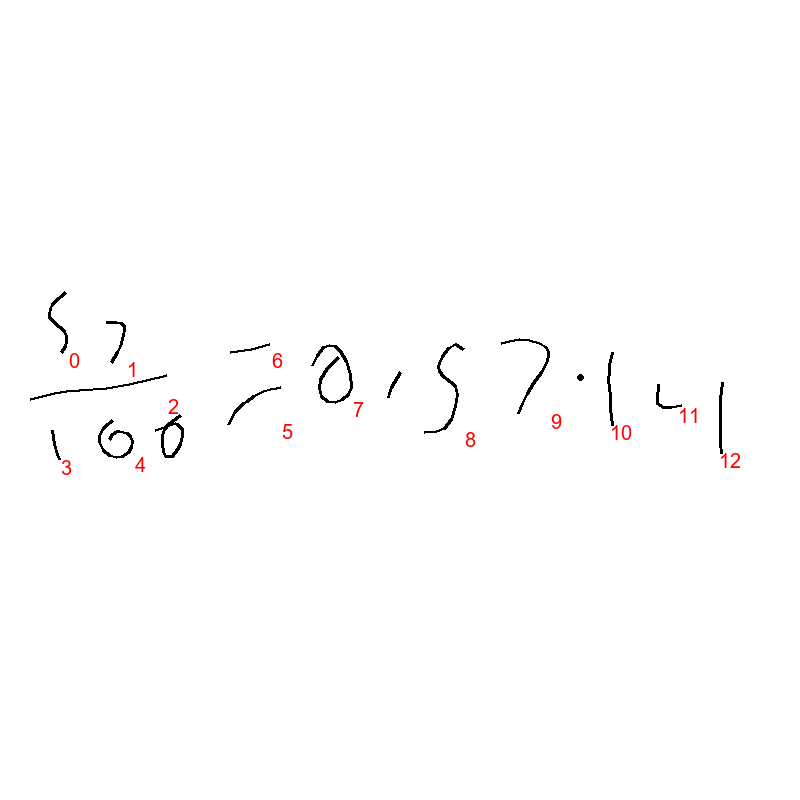 57
100
= 0,57·14
0 1 2 3 4 5 6 7 8 9 10 11 12